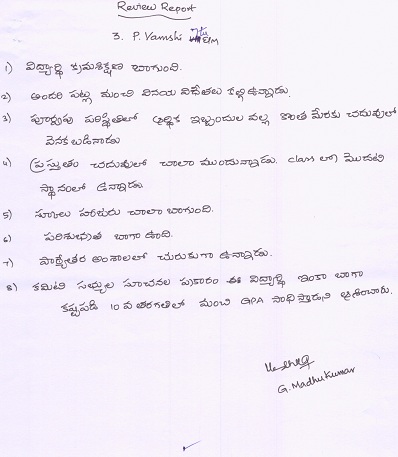 Review Report
3. P. Vamshi EM
1) విద్యార్థి క్రమశిక్షణ బాగుంది.
2) అందరి పట్ల మంచి వినయ విధేతలు కల్గి ఉన్నాడు.
3) పూర్వపు పరిస్థితిలో ఆర్థిక ఇబ్బందుల వల్ల కొంత మేరకు చదువులో
వెనక బడినాడు
4) ప్రస్తుతం చదువులో చాలా ముందున్నాడు. class లో మొదటి
స్థానంలో ఉన్నాడు
5) స్కూలు హాజరు చాలా బాగుంది.
6) పరిశుభ్రత బాగా ఉంది.
7) పాఠ్యేతర అంశాలలో చురుకుగా ఉన్నాడు.
8) కమిటి సభ్యుల సూచనల ప్రకారం ఈ విద్యార్థి ఇంకా బాగా
కష్టపడి 10 వ తరగతిలో మంచి GPA సాధిస్తాడని ఆశించారు.
G. Madhu Kumar